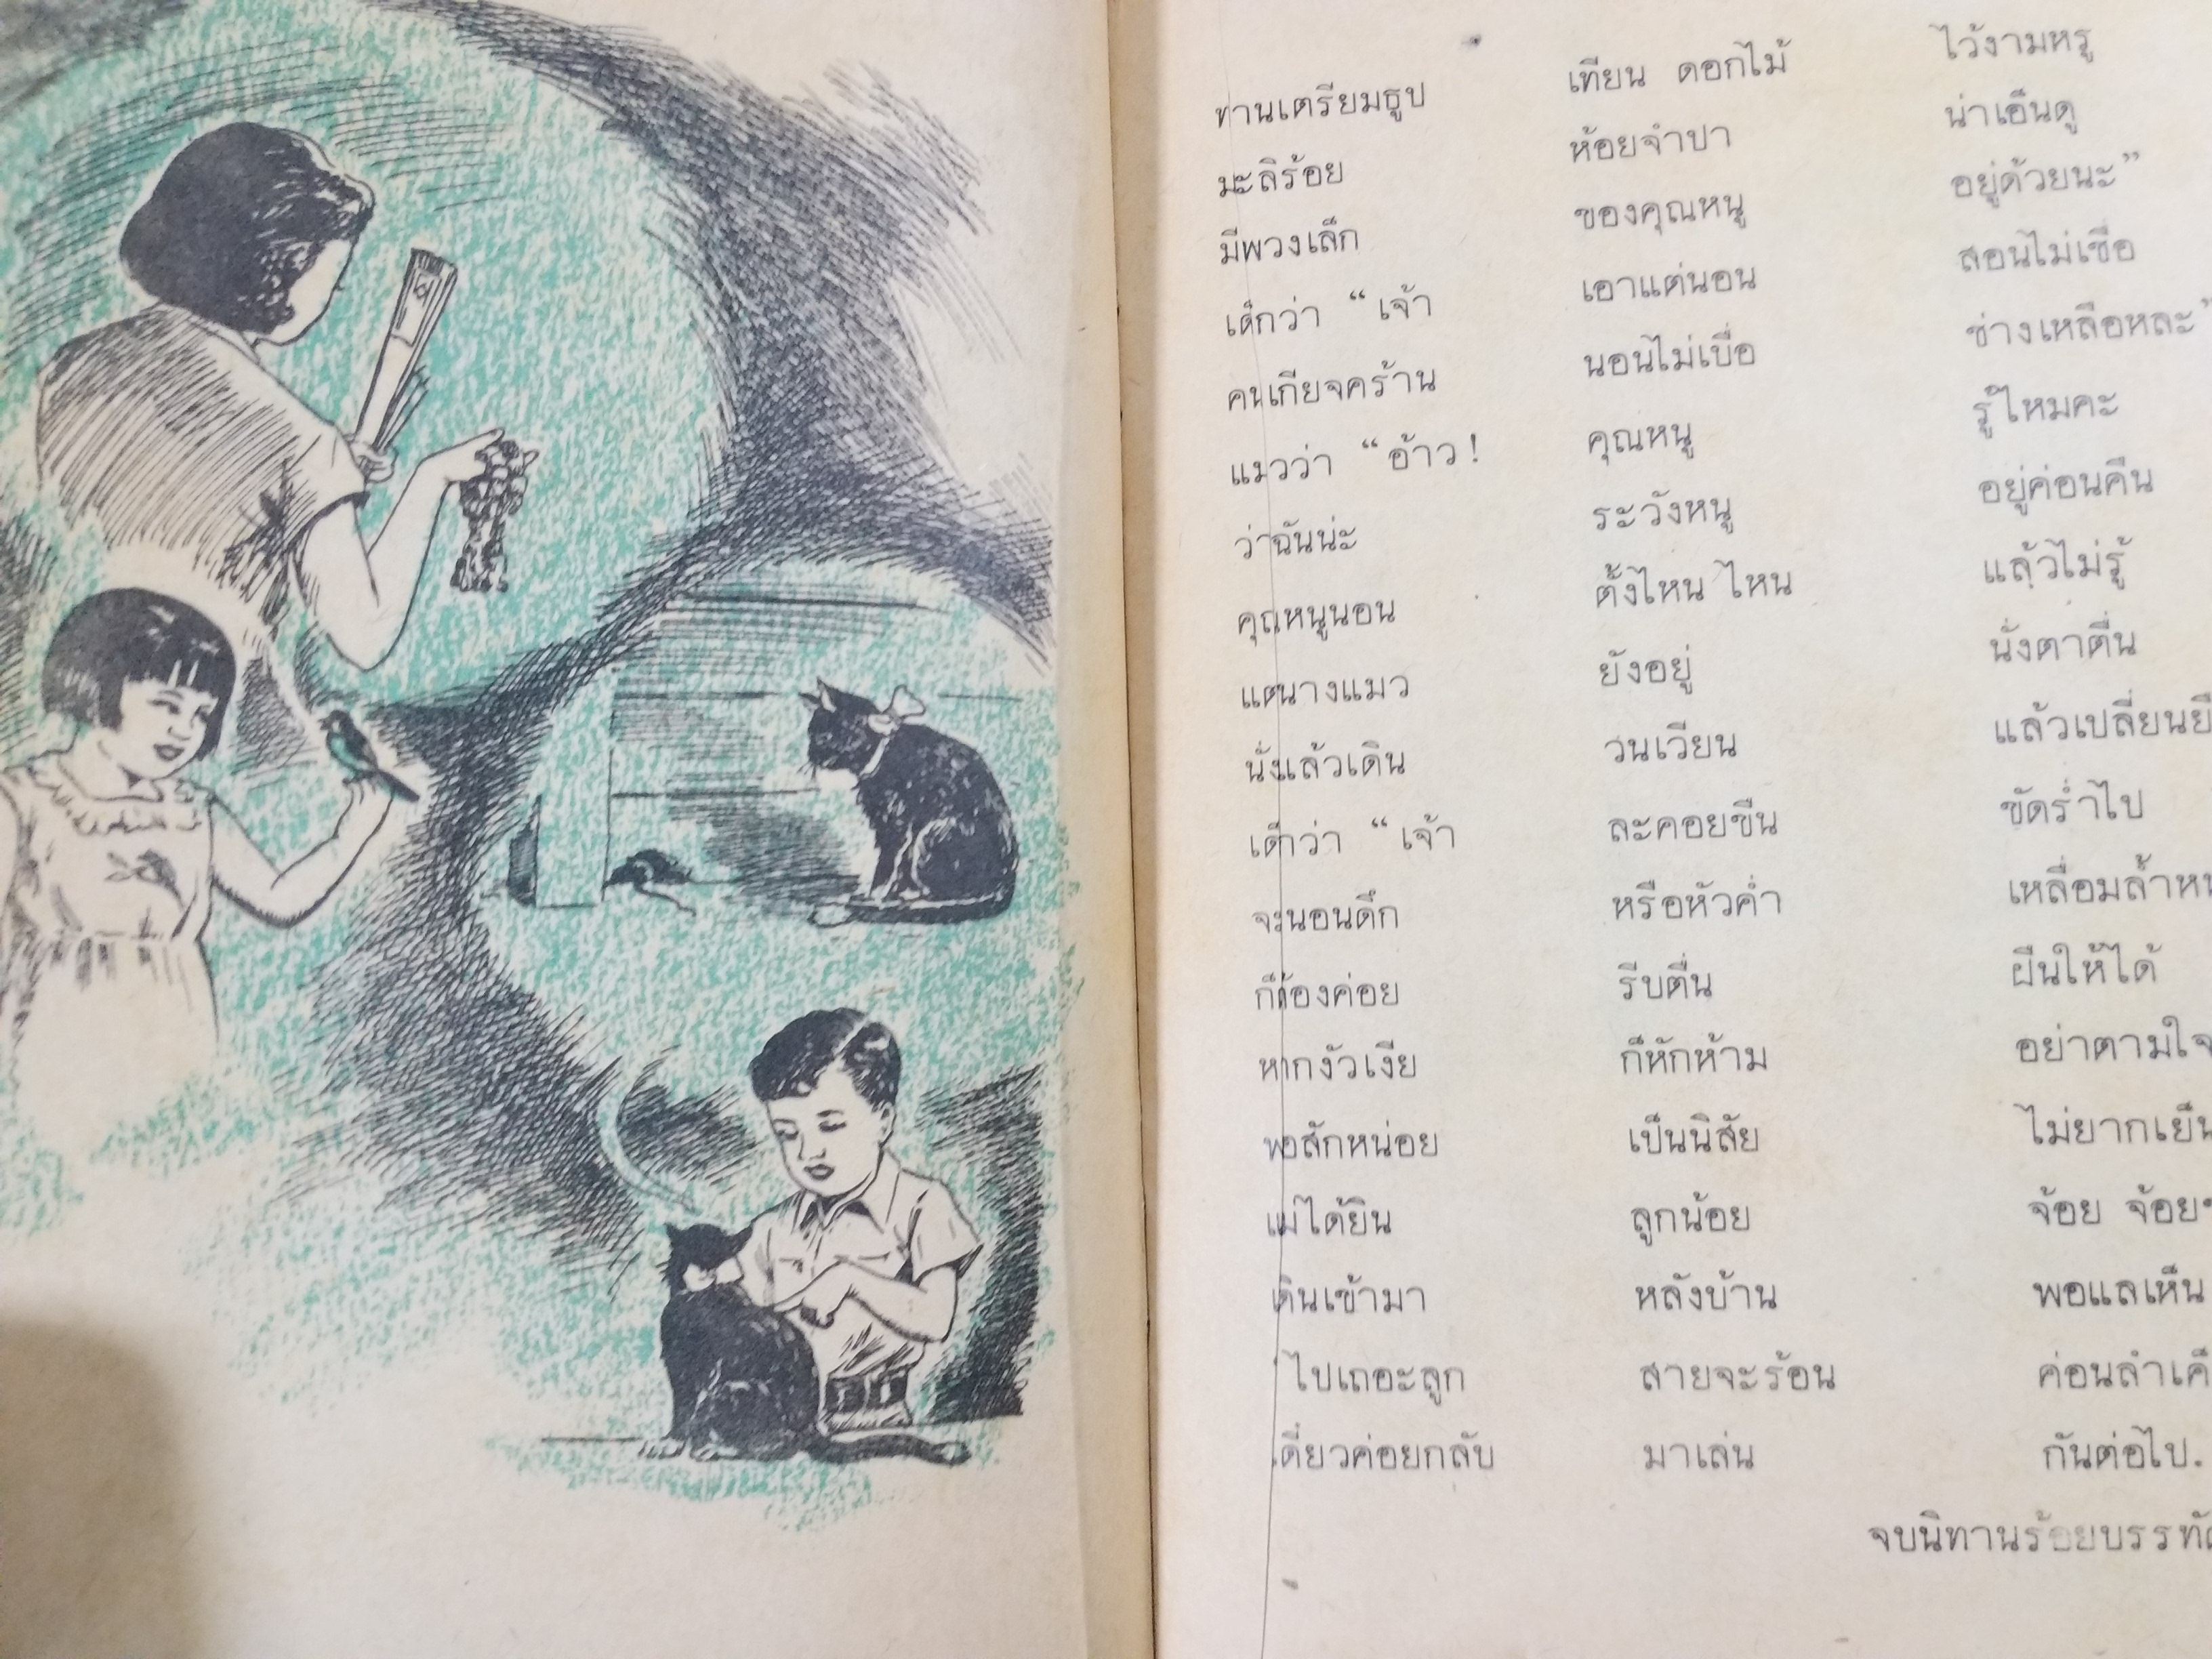 ท่านเตรียมธูป เทียน ดอกไม้ ไว้งามหรู
มะลิร้อย ห้อยจำปา น่าเอ็นดู
มีพวงเล็ก ของคุณหนู อยู่ด้วยนะ”
เด็กว่า “เจ้า เอาแต่นอน สอนไม่เชื่อ
คนเกียจคร้าน นอนไม่เบื่อ ช่างเหลือหละ”
แมวว่า “อ้าว! คุณหนู รู้ไหมคะ
ว่าฉันน่ะ ระวังหนู อยู่ค่อนคืน
คุณหนูนอน ตั้งไหน ไหน แล้วไม่รู้
แต่นางแมว ยังอยู่ นั่งตาตื่น
นั่งแล้วเดิน วนเวียน แล้วเปลี่ยนยืน
เด็กว่า “เจ้า ละคอยขืน ขัดร่ำไป
จะนอนดึก หรือหัวค่ำ เหลื่อมล้ำ
ก็ต้องค่อย รีบตื่น ฝืนให้ได้
หากงัวเงีย ก็หักห้าม อย่าตามใจ
พอสักหน่อย เป็นนิสัย ไม่ยากเย็น
แม่ได้ยิน ลูกน้อย จ้อย จ้อย
เดินเข้ามา หลังบ้าน พอแลเห็น
ไปเถอะลูก สายจะร้อน ค่อน
เดี๋ยวค่อยกลับ มาเล่น กันต่อไป.
จบนิทานร้อยบรรทัด